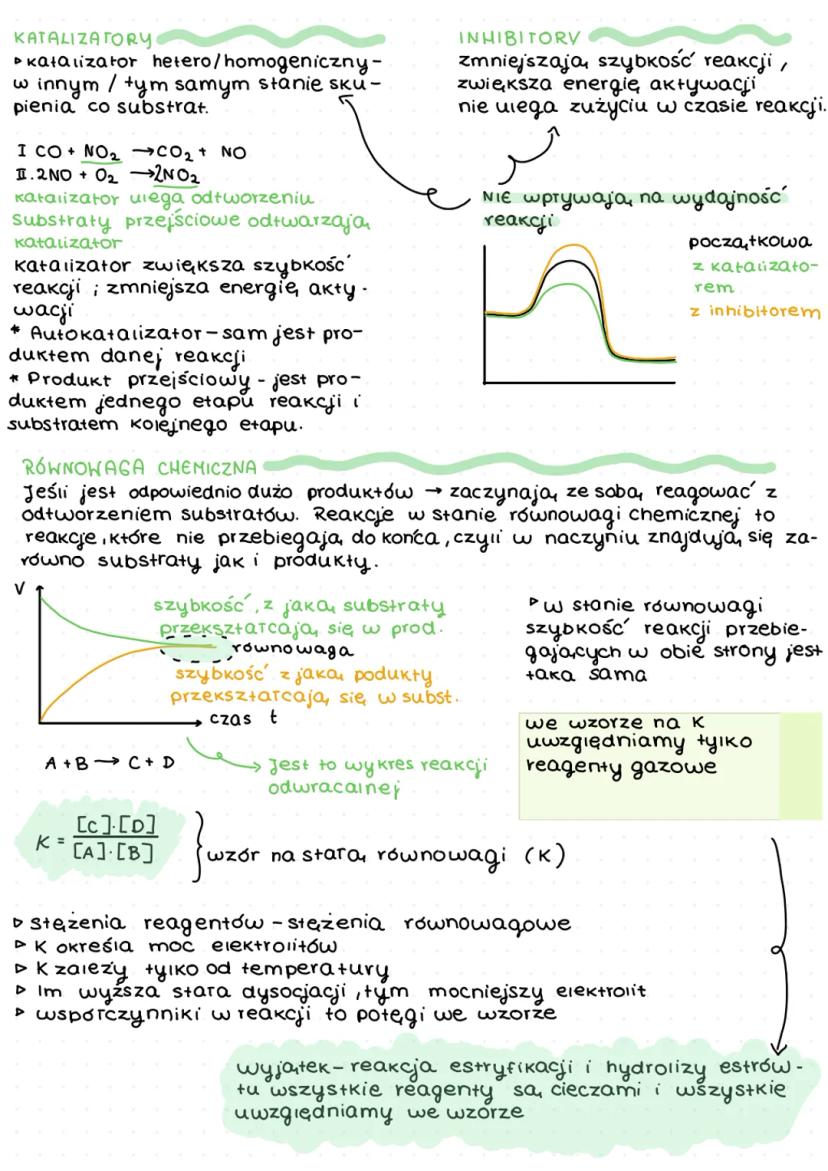 KATALIZATORY
▹ katalizator hetero/homogeniczny-
w innym / tym samym stanie sku-
pienia co substrat.
I CO + NO₂ → CO₂ + NO
II. 2NO + O₂ → 2NO₂
katalizator ulega odtworzeniu
substraty przejściowe odtwarzają
katalizator
katalizator zwiększa szybkość
reakcji ; zmniejsza energię akty-
wacji
* Autokatalizator – sam jest pro-
duktem danej reakcji
* Produkt przejściowy - jest pro-
duktem jednego etapu reakcji i
substratem kolejnego etapu.
INHIBITORY
zmniejszają szybkość reakcji,
zwiększa energię aktywacji
nie ulega zużyciu w czasie reakcji.
NIE wpływają na wydajność
reakcji
początkowa
z katalizato-
rem
z inhibitorem
RÓWNOWAGA CHEMICZNA
Jeśli jest odpowiednio dużo produktów → zaczynają ze sobą reagować z
odtworzeniem substratów. Reakcje w stanie równowagi chemicznej to
reakcje, które nie przebiegają do końca, czyli w naczyniu znajdują się za-
równo substraty jak i produkty.
V
szybkość, z jaką substraty
przekształcają się w prod.
równowaga
szybkość z jaką podukty
przekształcają się w subst.
czas t
A + B → C + D
Jest to wykres reakcji
odwracalnej
▹ w stanie równowagi
szybkość reakcji przebie-
gających w obie strony jest
taka sama
we wzorze na K
uwzględniamy tylko
reagenty gazowe
K = [C]·[D] / [A]·[B]
wzór na stałą równowagi (K)
▹ stężenia reagentów – stężenia równowagowe
▹ K określa moc elektrolitów
▹ K zależy tylko od temperatury
▹ Im wyższa stała dysocjacji, tym mocniejszy elektrolit
▹ współczynniki w reakcji to potęgi we wzorze
wyjątek – reakcja estryfikacji i hydrolizy estrów -
tu wszystkie reagenty są cieczami i wszystkie
uwzględniamy we wzorze